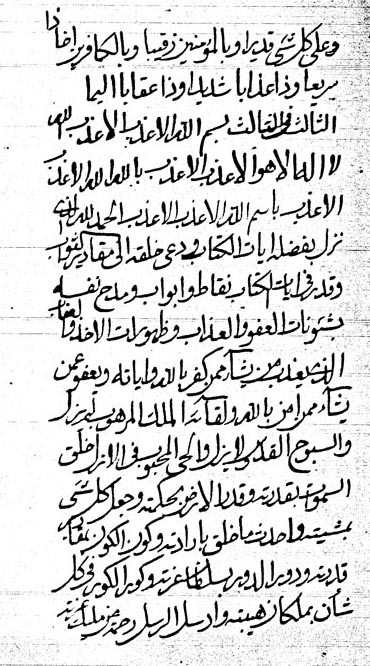 وعلى كل شئ قديرا وبالمؤمنين رقيبا وبالكافرين اخاذا
سريعا وذا عذابا شديدا وذا عقابا اليما
الثالث فى الثالث بسم الله الاعذب الاعذب الله
لا اله الا هو الاعذب الاعذب بالله الله الاعذب
الاعذب باسم الله الاعذب الاعذب الحمد لله الذى
نزل بفضله ايات الكتاب ودعى خلقه الى مقادير
وقدر فى ايات الكتاب نقاط وابواب ومدح نفسه
بشئونات العفو والعذاب وظهورات الاخذ والعقاب
الذى يعذب من يشآء ممن كفر بالله واياته ويعفو عمن
يشآء ممن امن بالله ولقآئه الملك المرهوب لم يزل
والسبوح القدوس لا يزل والحى المحبوب فى الازل خلق
السموات بقدرته وقدر الارض بحكمته وجعل كل شئ
بمشيته واحدث ما خلق بارادته وكون الكون
قدرته ودور الدور بسلطان عزته وكور الكور فى كل
شان بملكان هيبته وارسل الرسل رحمة من